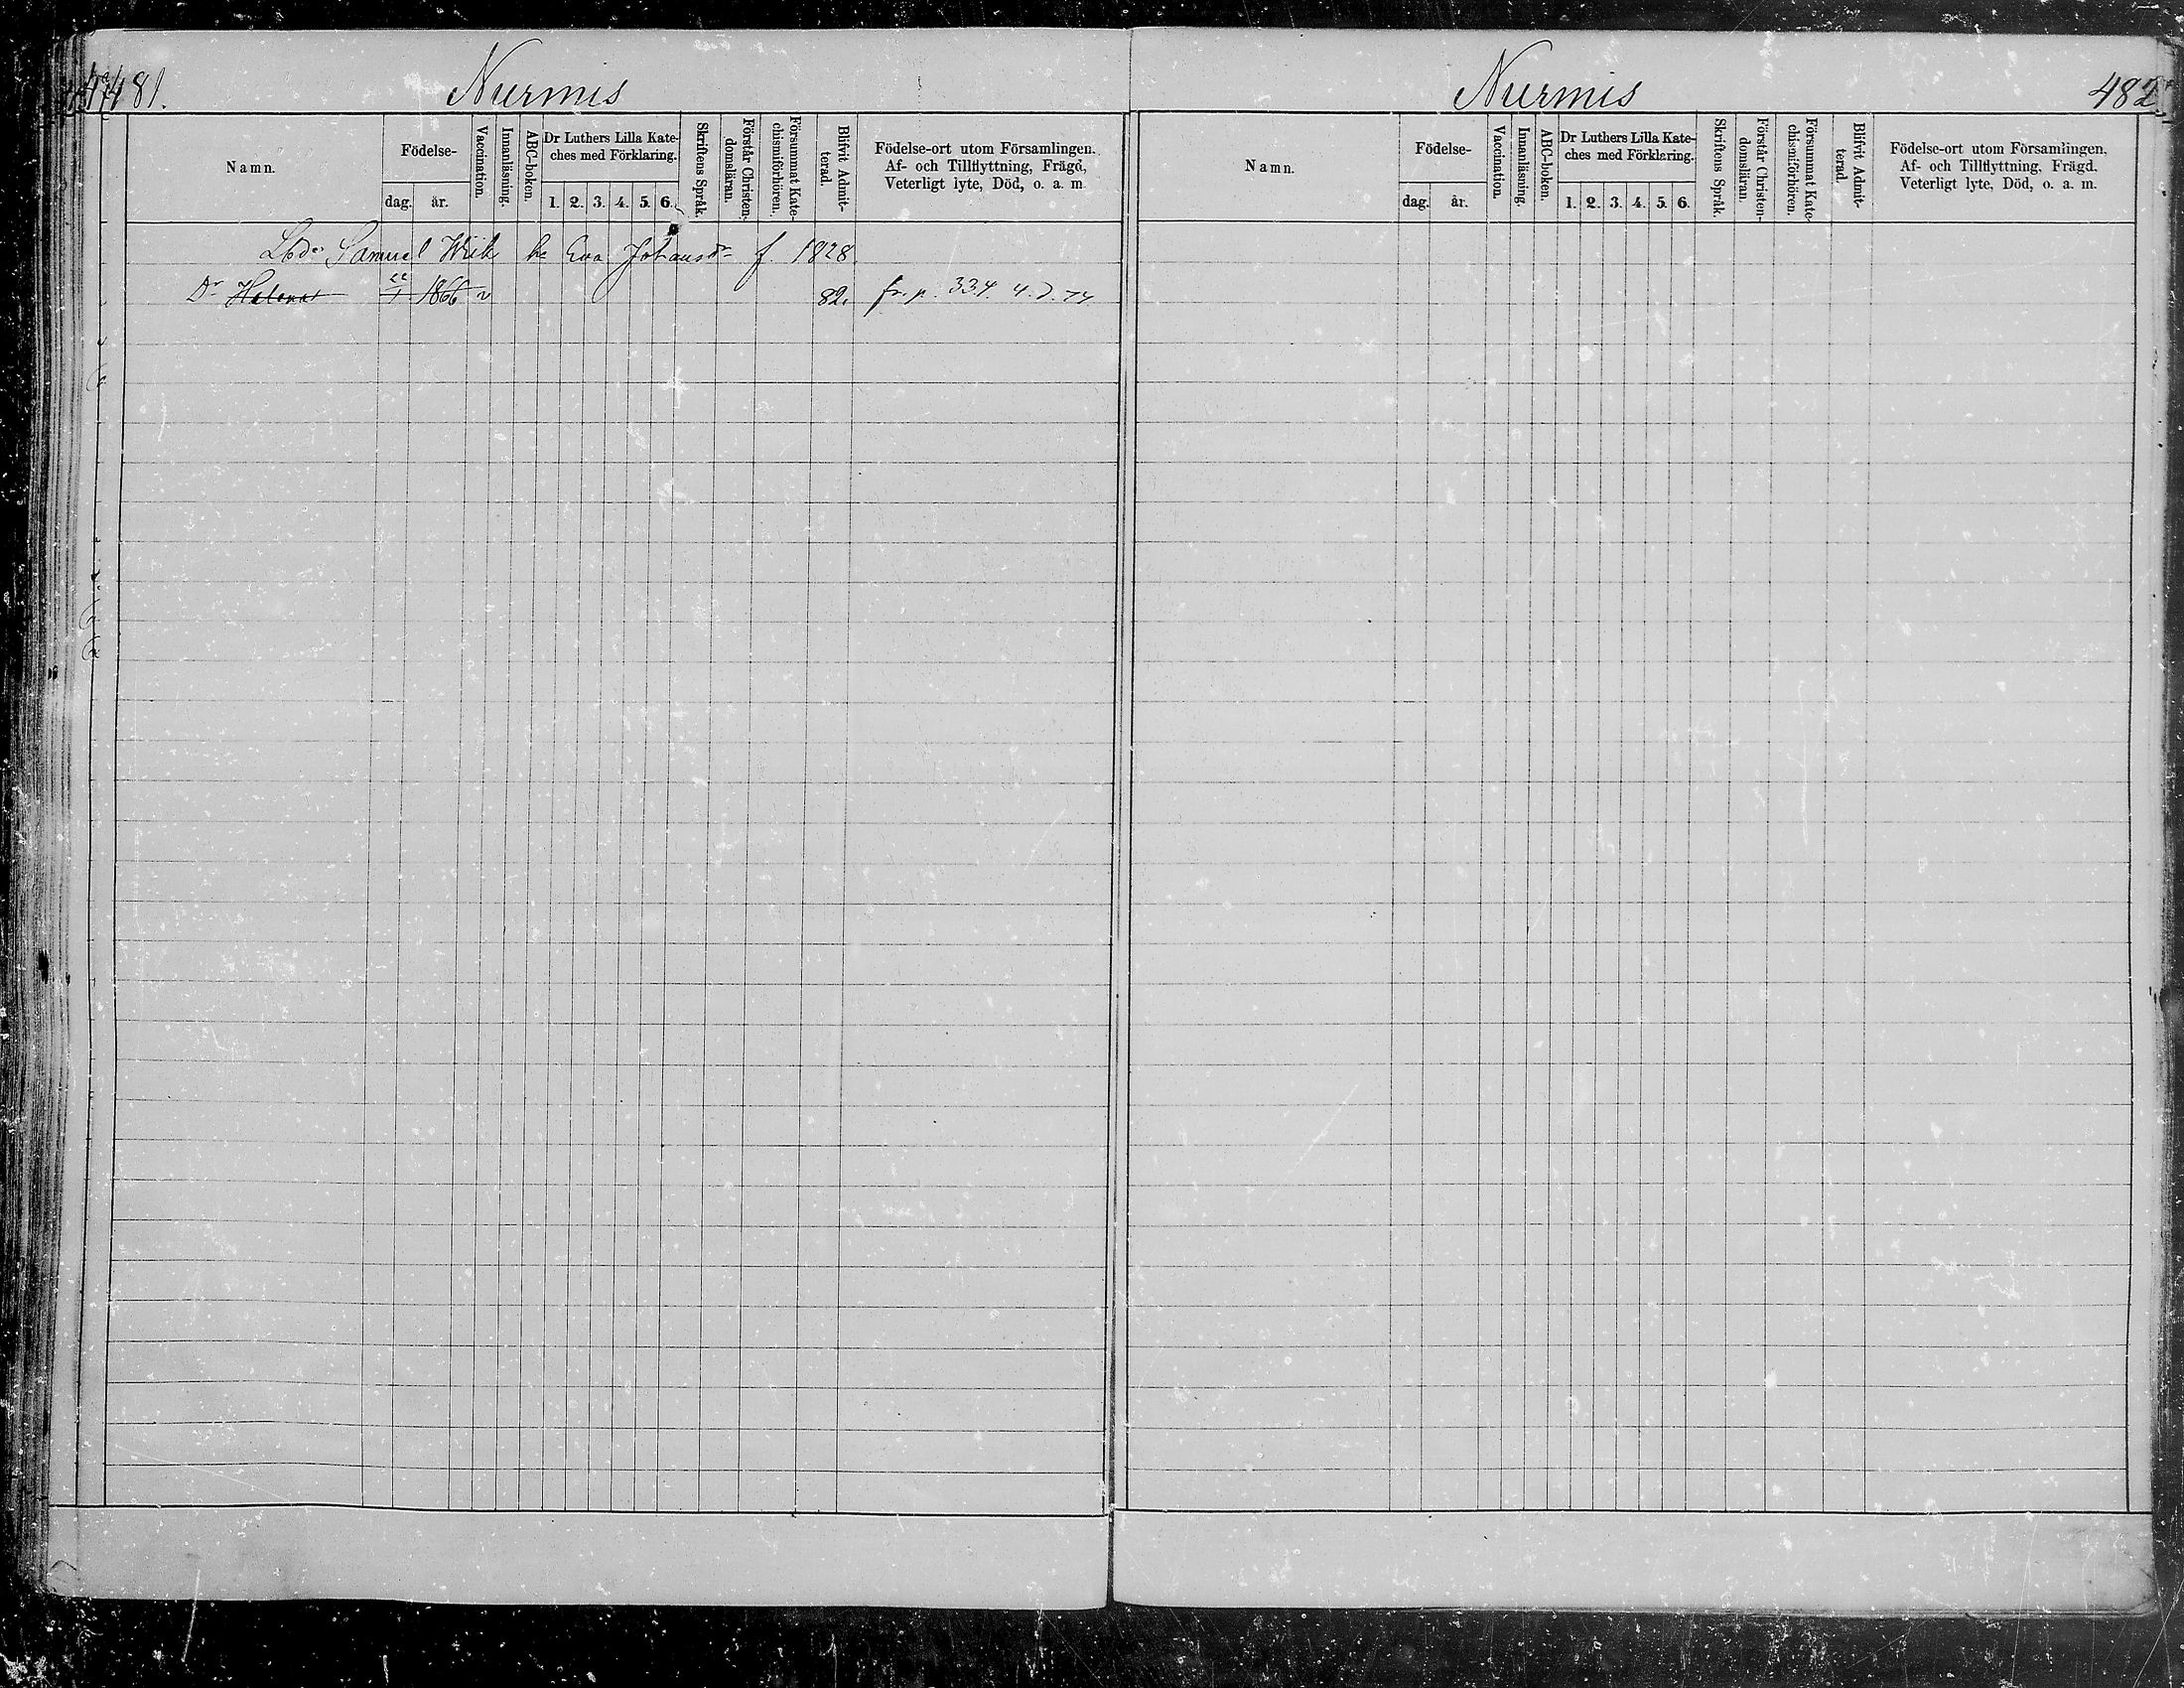 481.
Nurmis
Namn.
Födelse-
dag.
år.
Vaccination.
Innanläsning.
ABC-boken.
Dr Luthers Lilla Kate-
ches med Förklaring.
1. 2. 3. 4. 5. 6.
Skriftens Språk.
Förstår Christen-
domsläran.
Försummat Kate-
chismiförhören.
Blifvit Admit-
terad.
Födelse-ort utom Församlingen.
Af- och Tillflyttning, Frägd,
Veterligt lyte, Död, o. a. m
Samuel Wiik Eva Johansdr f. 1828.
Dr Helena 1866 v 82. fr. p. 334.
Nurmis
482
Namn.
Födelse-
dag.
år.
Vaccination.
Innanläsning.
ABC-boken.
Dr Luthers Lilla Kate-
ches med Förklaring.
1. 2. 3. 4. 5. 6.
Skriftens Språk.
Förstår Christen-
domsläran.
Försummat Kate-
chismiförhören.
Blifvit Admit-
terad.
Födelse-ort utom Församlingen.
Af- och Tillflyttning, Frägd.
Veterligt lyte, Död, o. a. m.